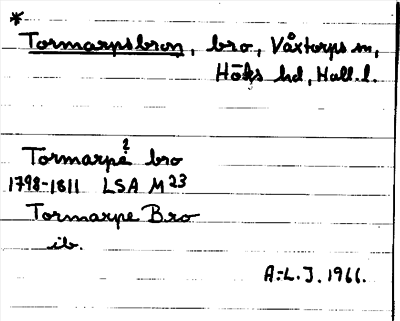 *
Tormarpsbron, bro, Våxtorps sn,
Höks hd, Hall. l.
Tormarpe? bro
1798-1811 LSA M 23
Tormarpe Bro
ib.
A.-L. J. 1966.